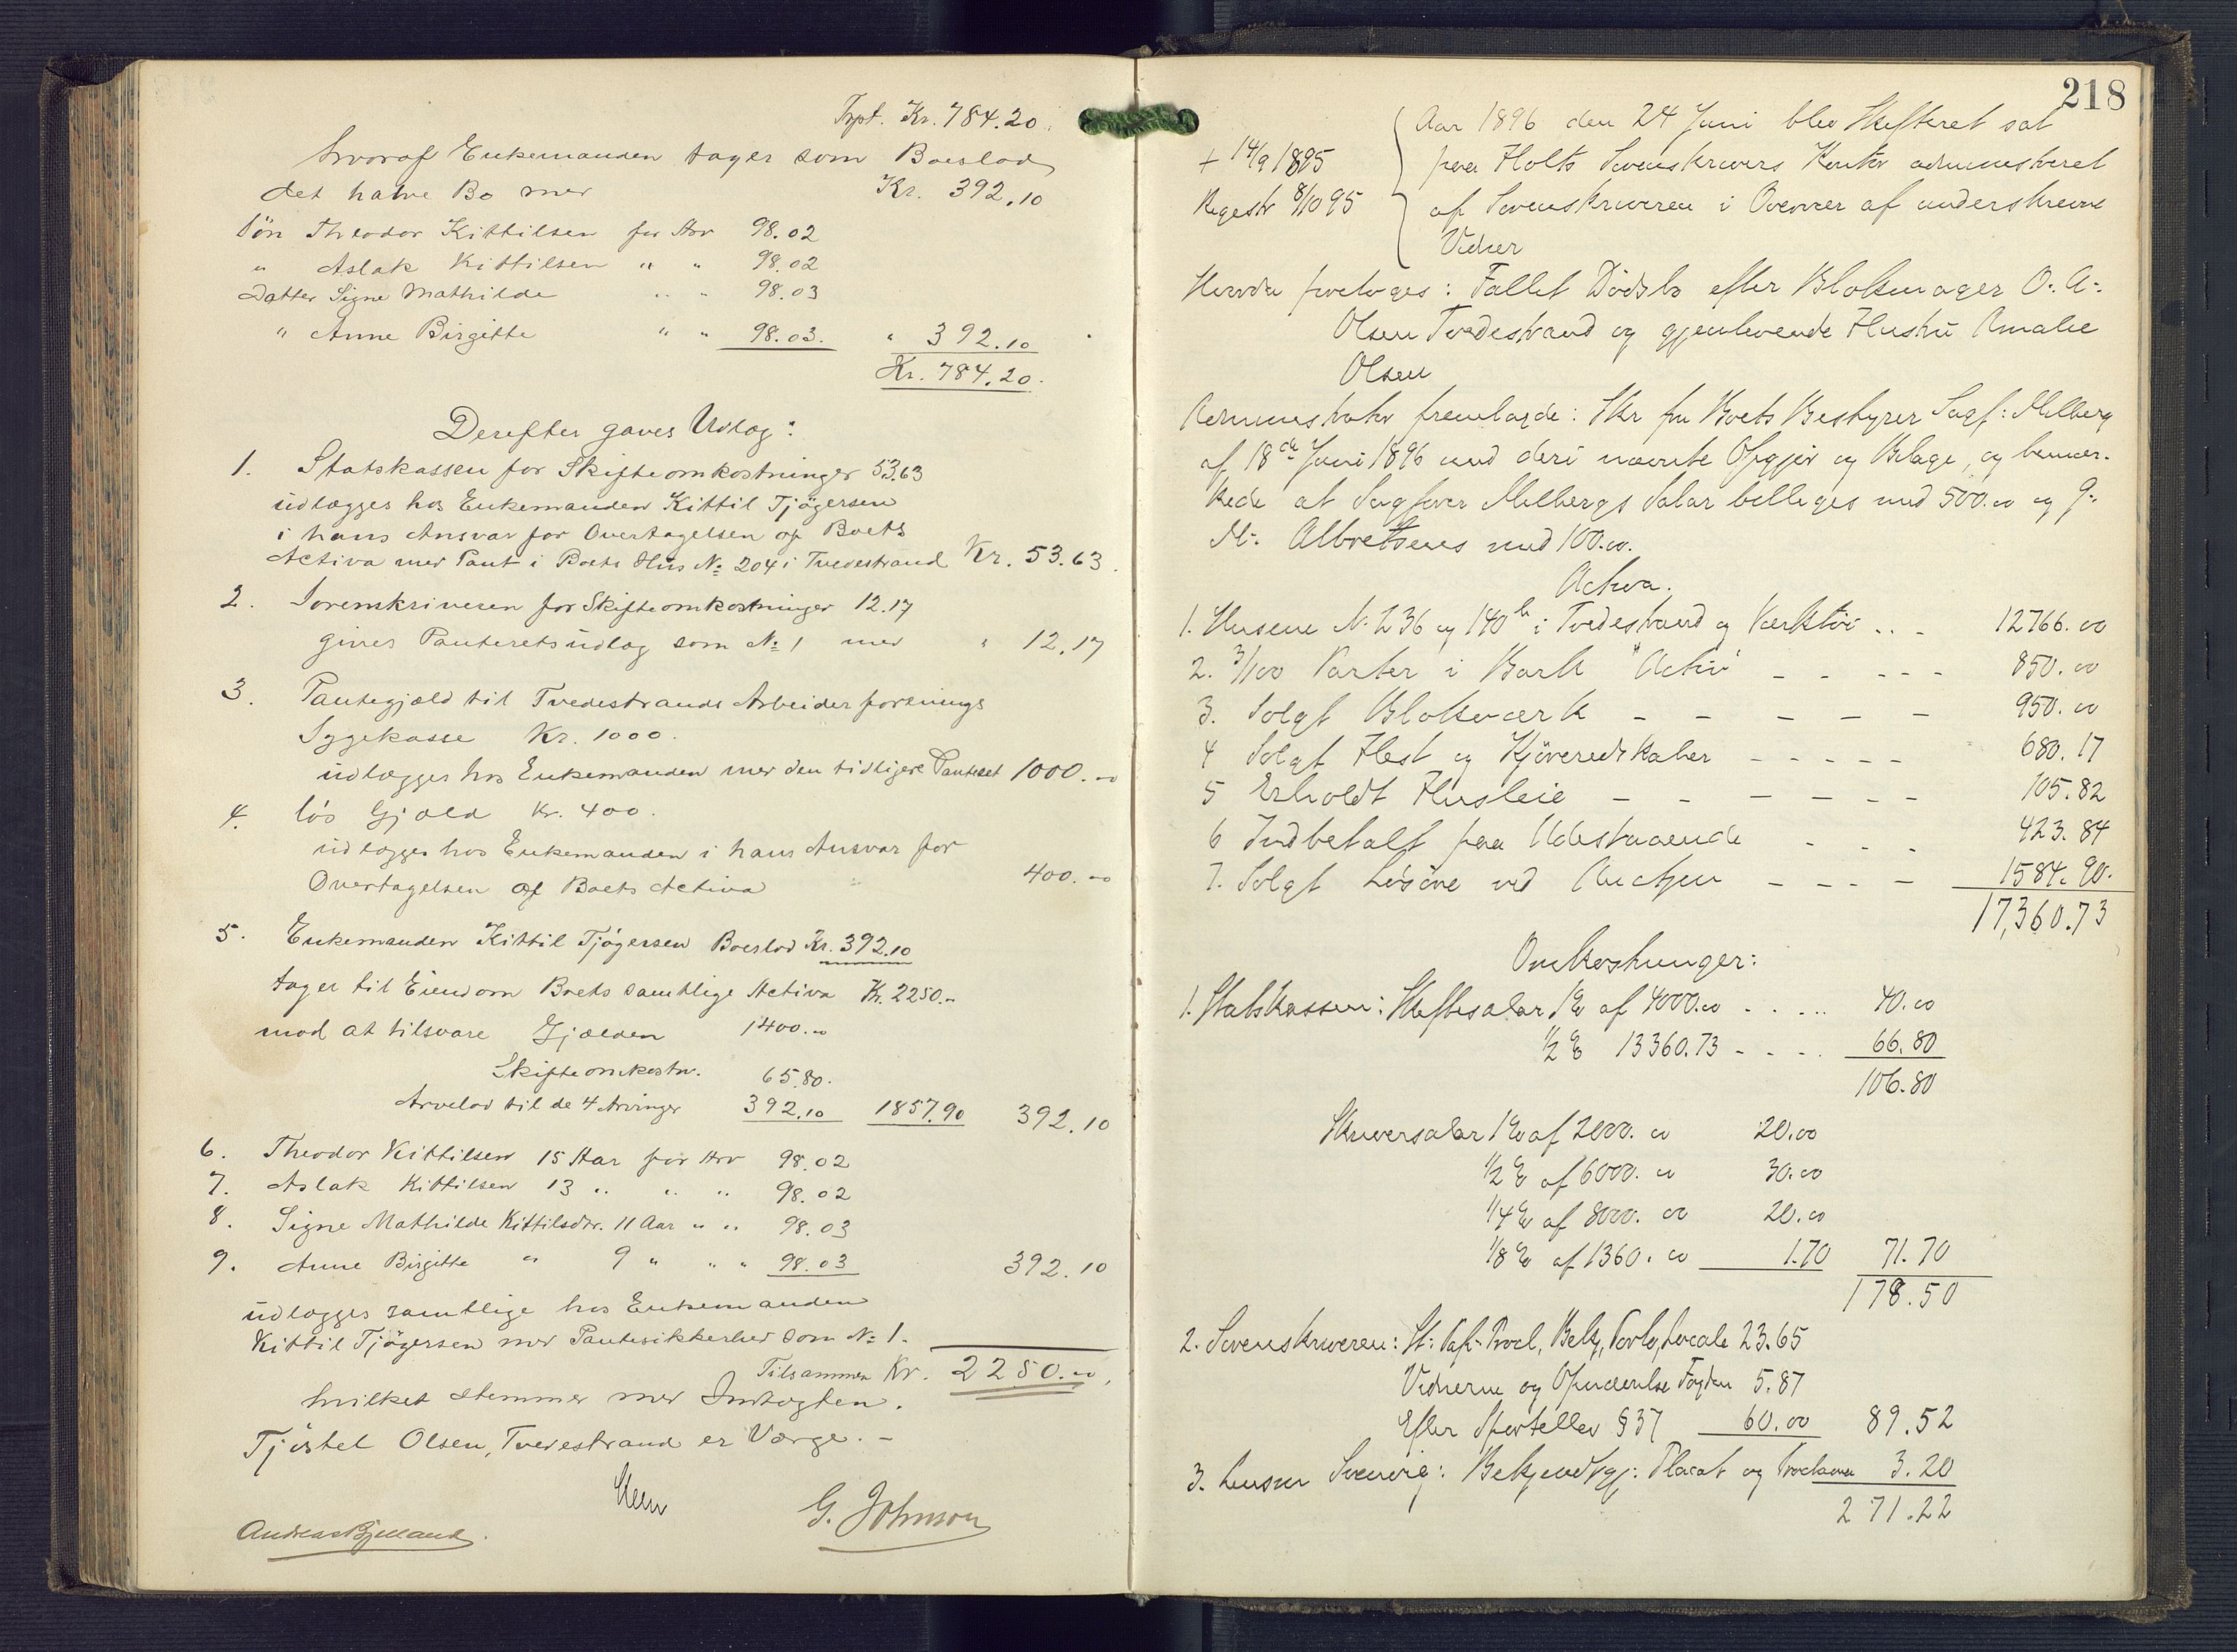 Trpt. Kr. 784.20.
hvoraf Enkemanden tager som Boeslod
det halve Bo mer Kr. 392.10
Sön Theodor Kittilsen for Arv 98.02
" Aslak Kittilsen " " 98.02
Datter Signe Mathilde " " 98.03
" Anne Birgitte " " 98.03. " 392.10
Kr. 784.20.
Derefter gaves Udlæg:
1. Statskassen for Skifteomkostninger 53.63
udlægges hos Enkemanden Kittil Tjögersen
i hans Ansvar for Overtagelsen af Boets
Activa med Pant i Boets Hus No 204 i Tvedestrand Kr. 53.63.
2. Sorenskriveren for Skifteomkostninger 12.17
gives Panteretsudlæg som No 1 med " 12.17
3. Pantegjæld til Tvedestrands Arbeiderforenings
Sygekasse Kr. 1000.
udlægges hos Enkemanden med den tidligere Panteret 1000.00
4. lös Gjæld Kr. 400.
udlægges hos Enkemanden i hans Ansvar for
Overtagelsen af Boets Activa " 400.00
5. Enkemanden Kittil Tjögersen Boeslod Kr. 392.10
tager til Eiendom Boets samtlige Activa Kr. 2250.00
mod at tilsvare Gjælden 1400.00
Skifteomkostn. 65.80.
Arvelod til de 4 Arvinger 392.10 1857.90 392.10
6. Theodor Kittilsen 15 Aar for Arv 98.02
7. Aslak Kittilsen 13 " " " 98.02
8. Signe Mathilde Kittilsdtr. 11 Aar " " 98.03
9. Anne Birgitte " 9 " " " 98.03 392.10
udlægges samtlige hos Enkemanden
Kittil Tjögersen med Pantesikkerhed som No 1.
Tilsammen Kr. 2250.00,
hvilket stemmer med Indtægten.
Tjöstel Olsen, Tvedestrand er Værge. -
G. Johnson
Andreas Bjelland.
218
+ 14/9 1895
Registr 8/10 95
Aar 1896 den 24 Juni blev Skifteret sat
paa Holts Sorenskrivers Kontor administreret
af Sorenskriveren i Overvær af underskrevne
Vidner
Hvorda foretoges: Fallet Dödsbo efter Blokmager O. A.
Olsen Tvedestrand og gjenlevende Hustru Amalie
Olsen
Administrator fremlagde: Skr fra Boets Bestyrer Sagf: Melberg
af 18de Juni 1896 med deri nævnte Opgjør og Bilage, og bemær-
kede at Sagfører Melbergs Salær billiges med 500.00 og
M. Albretsens med 100.00.
Activa.
1. Husene No 236 og 140b i Tvedestrand og Værktöi . . - 12766.00
2. 3/100 Parter i Bark "Activ" - - - - - 850.00
3. Solgt Blokværk - - - - - 950.00
4 Solgt Hest og Kjöreredskaber - - - - - 680.17
5 Erholdt Husleie - - - - - - 105.82
6 Indbetalt paa Udestaaende - - - 423.84
7. Solgt Lösöre ved Auction - - - - 1584.90.
17,360.73
Omkostninger:
1. Statskassen: Skiftesalær 1% af 4000.00 . . . . . 40.00
1/2 % 13360.73 - . . . 66.80
106.80
Skriversalær 1% af 2000.00 20.00
1/2 % af 6000.00 30.00
1/4 % af 8000.00 20.00
1/8 % af 1360.00 1.70 71.70
178.50
2. Sorenskriveren: St. Pap. Procl, Bekj, Porto, Locale 23.65
Vidnerne og Opnævnelse Fogden 5.87
Efter Sportellov § 37 60.00 89.52
3. Lensm : Bekjendtgj: Placat og Proclama 3.20
271.22